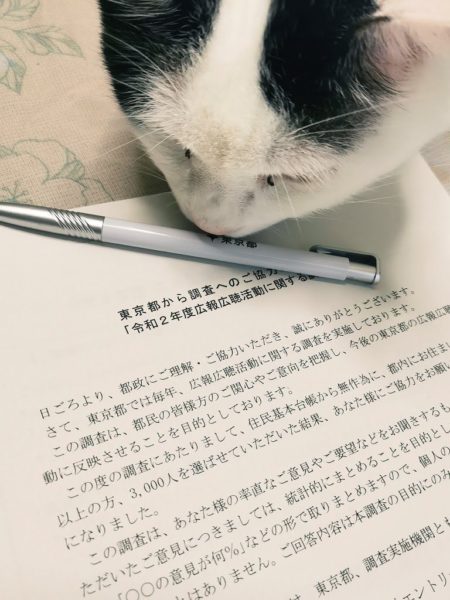 東京都
東京都から調査へのご協力
「令和2年度広報広聴活動に関する
日ごろより、都政にご理解、ご協力いただき、誠にありがとうございます。
さて、東京都では毎年、広報広聴活動に関する調査を実施しております。
この調査は、都民の皆様方のご関心やご意向を把握し、今後の東京都の広報広聴
動に反映させることを目的としております。
この度の調査にあたりまして、住民基本台帳から無作為に、都内にお住ま
以上の方、3,000人を選ばせていただいた結果、あなた様にご協力をお願
になりました。
この調査は、あなた様の率直なご意見やご要望などをお聞きするも
ただいたご意見につきましては、統計的にまとめることを目的とし
「○○の意見が何%」などの形で取りまとめますので、個人の
はありません。ご回答内容は本調査の目的にのみ
は、東京都、調査実施機関とも
エントリ